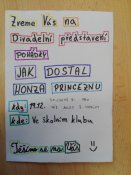 Zveme Vás na
Divadelní představení
POHÁDKY
JAK DOSTAL
HONZA PRINCEZNU
kdy: 19.12.
kde: Ve školním klubu
Těšíme se na Vás